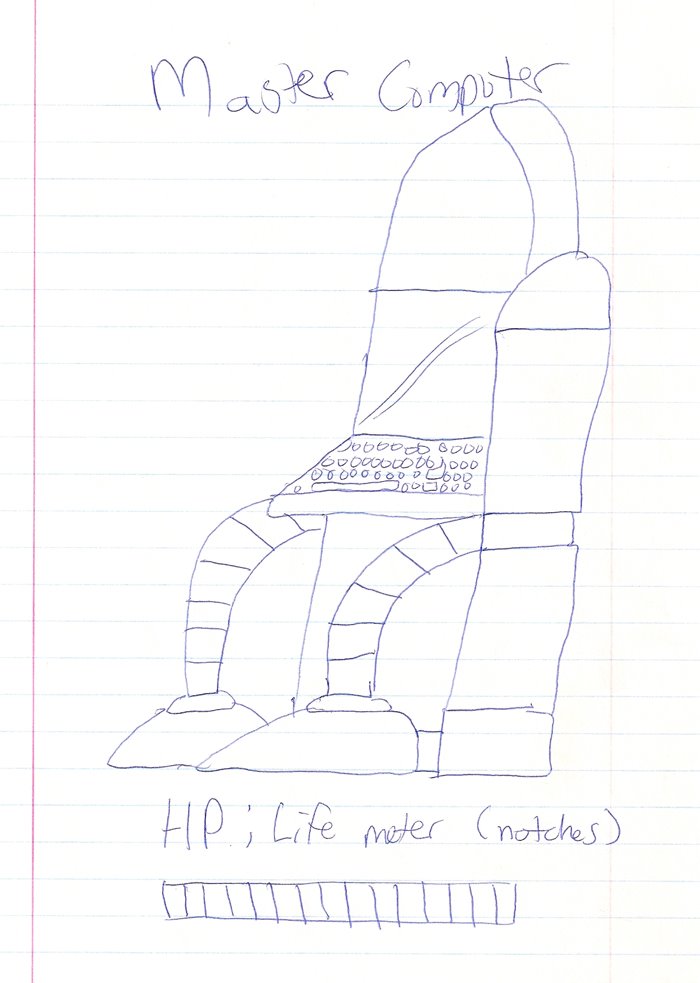 Master Computer
HP; Life meter (notches)